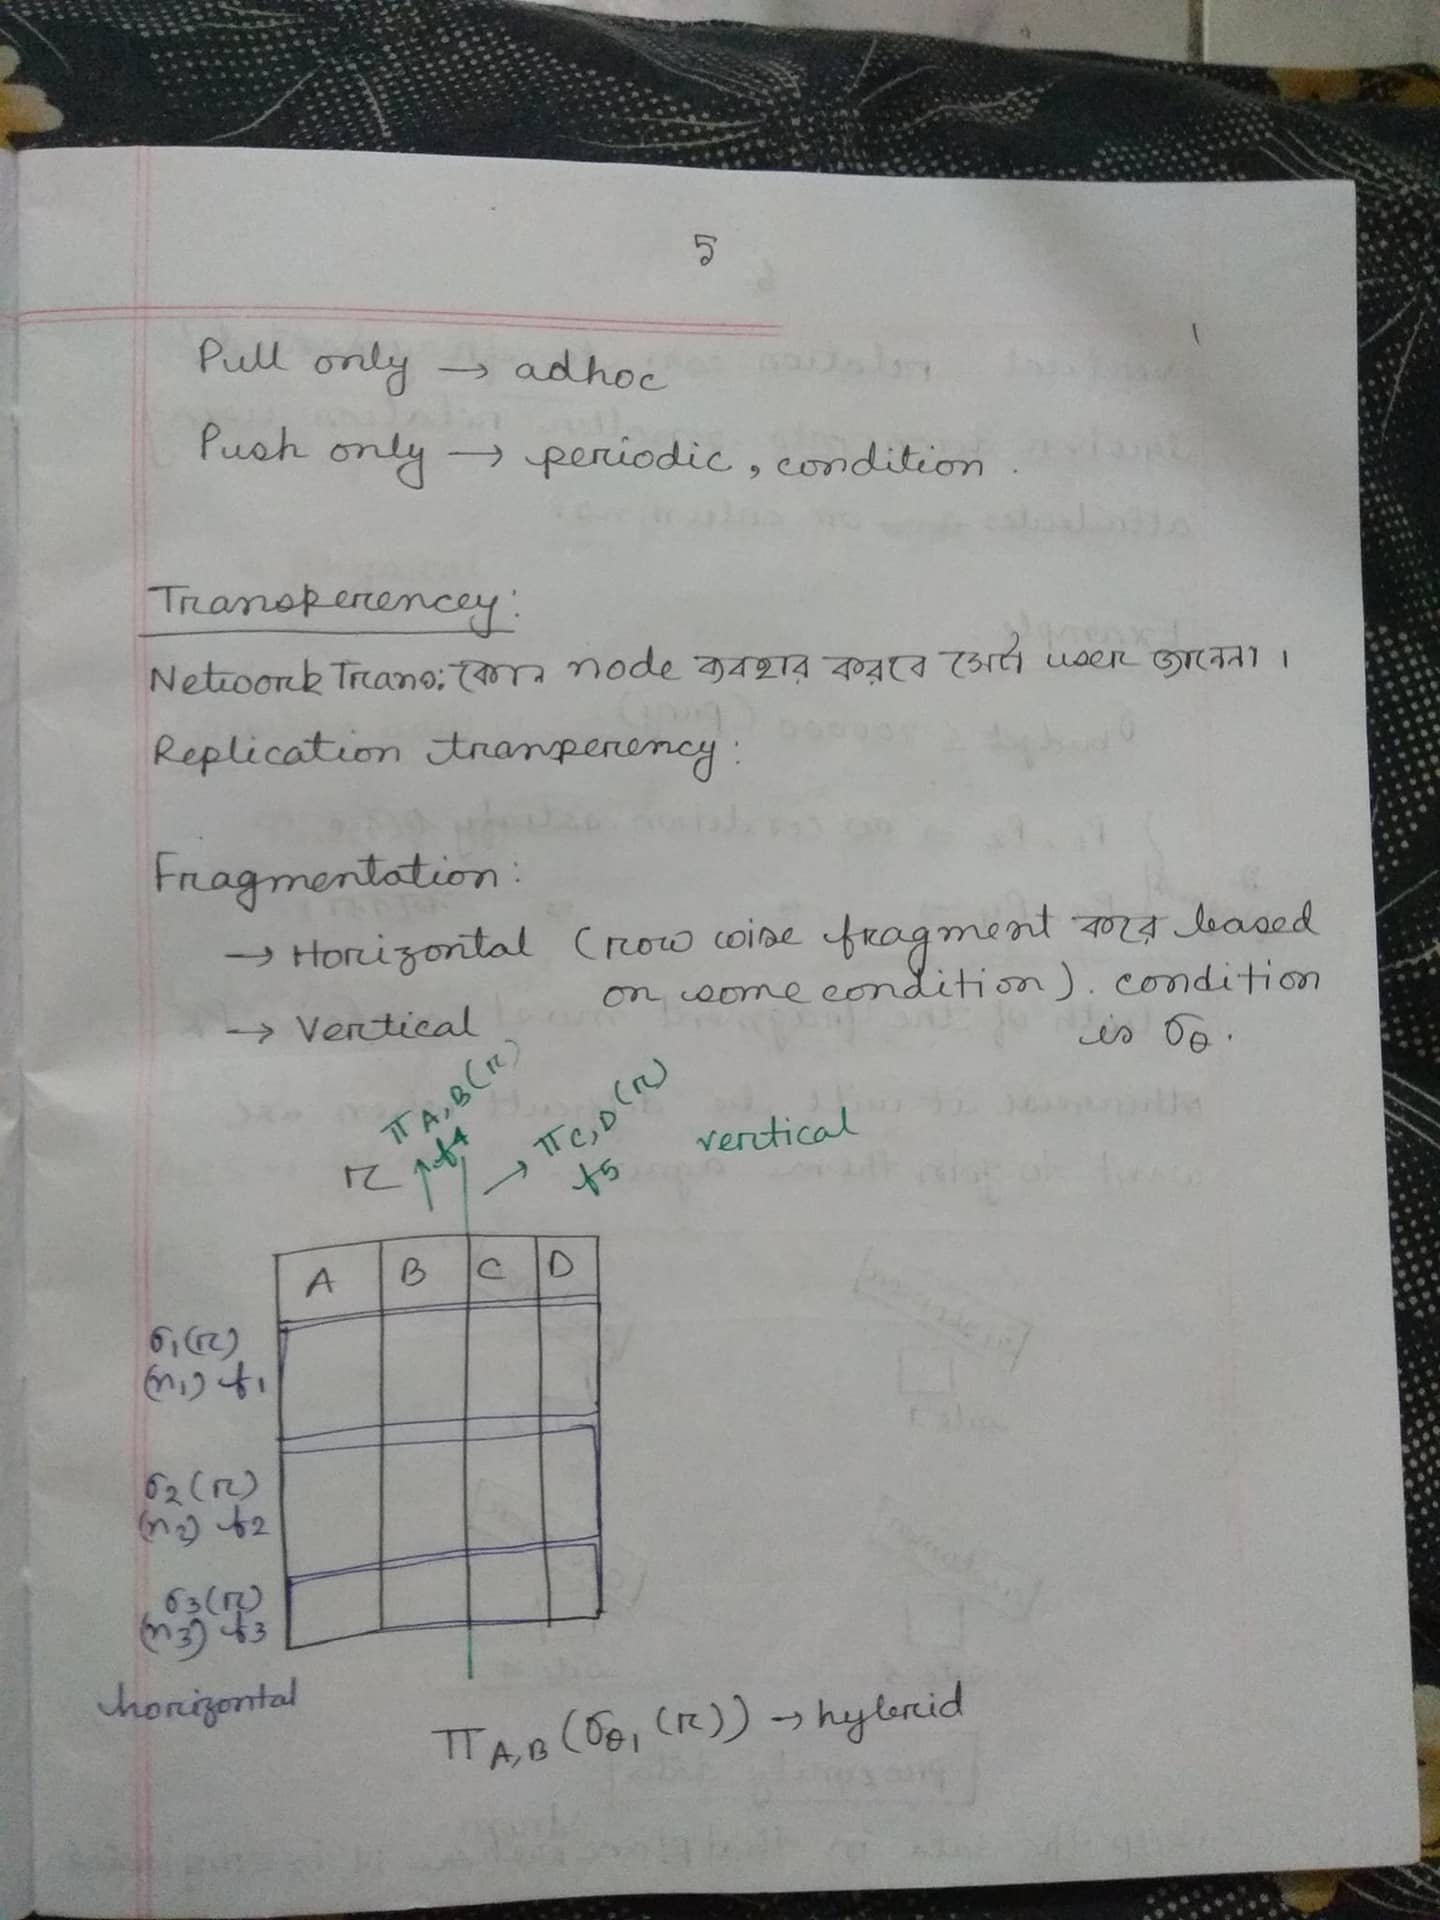 5
Pull only → adhoc
Push only → periodic, condition.
Transperencey:
Network Trans: কোন node ব্যবহার করবে সেটা user জানেনা।
Replication tranperency:
Fragmentation:
→ Horizontal (row wise fragment করে based
on some condition). condition
→ Vertical is σθ.
π A,B (r)
f4
π C,D (r)
f5
vertical
r
A B C D
σ1(r)
(n1) f1
σ2(r)
(n2) f2
σ3(r)
(n3) f3
horizontal
π A,B (σθ1 (r)) → hybrid